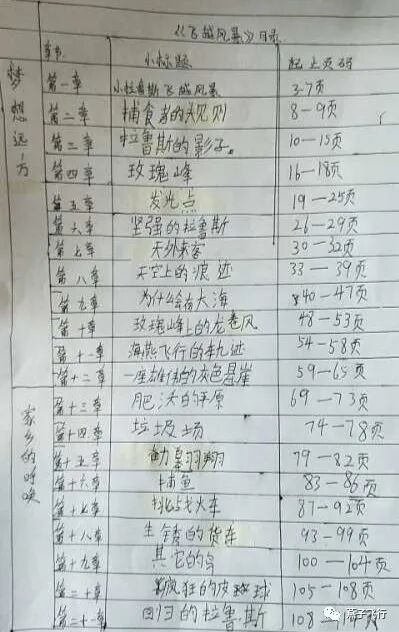 《飞越风暴》目录
章节 小标题 起止页码
梦想远方
第一章 小拉鲁斯飞越风暴 3-7页
第二章 捕食者的规则 8-9页
第三章 拉鲁斯的影子。 10-15页
第四章 玫瑰峰 16-18页
第五章 发光点 19-25页
第六章 坚强的拉鲁斯 26-29页
第七章 天外来客 30-32页
第八章 天空上的浪迹 33-39页
第九章 为什么会有大海 40-47页
第十章 玫瑰峰上的龙卷风 48-53页
第十一章 海燕飞行的轨迹 54-58页
第十二章 一座雄伟的灰色悬崖 59-65页
家乡的呼唤
第十三章 肥沃的平原 69-73页
第十四章 垃圾场 74-78页
第十五章 翱翔 79-82页
第十六章 捕鱼 83-86页
第十七章 挑战火车 87-92页
第十八章 生锈的货车 93-99页
第十九章 其它的鸟 100-104页
第二十章 疯狂的皮球 105-108页
第二十一章 回归的拉鲁斯 108-